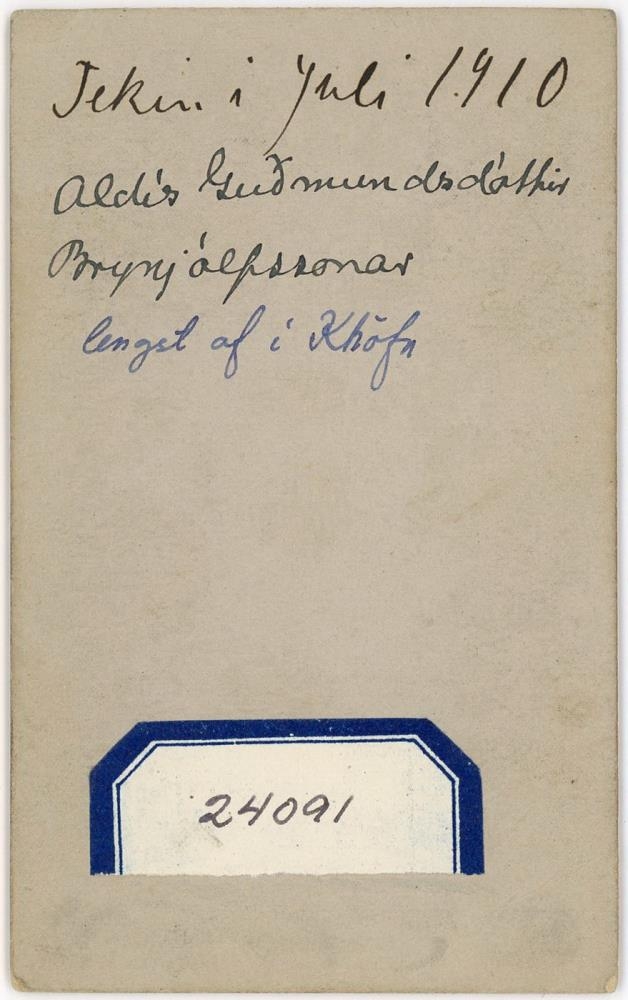 Tekin i Juli 1910
Aldís Guðmundsdóttir
Brynjólfssonar
lengst af í Khöfn
24091